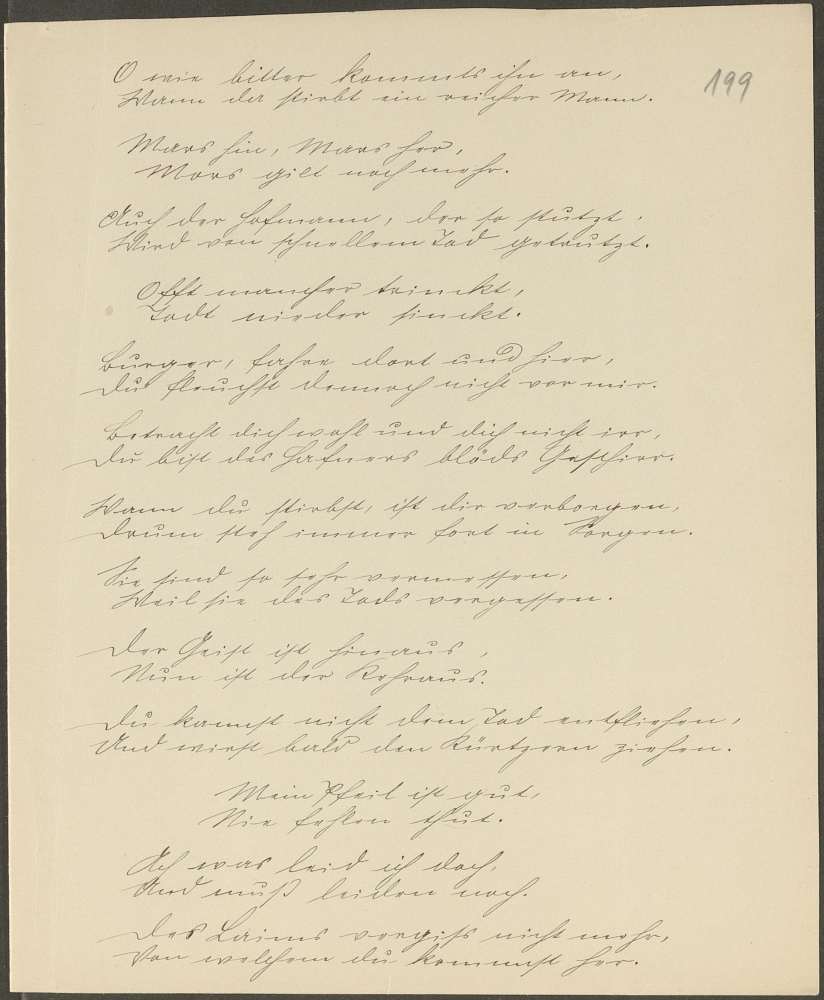 199
O wie bitter kommts ihn an,
Wann der stirbt ein reicher Mann.
Mars hin, Mars her,
Mors gilt noch mehr.
Auch der Hofmann, der so stutzt,
Wird von schnellem Tod getrutzt.
Offt mancher trinckt,
Todt nieder sinckt.
Burger, fahre dort und hier,
Du fleuchst dennoch nicht vor mir.
Betracht dich wohl und dich nicht irr,
Du bist des Hafners blöds Geschirr.
Wann du stirbst, ist dir verborgen,
Drum steh immer fort in Sorgen.
Sie sind so sehr vermessen,
Weil sie des Tods vergessen.
Der Geist ist hinaus,
Nun ist der Kehraus.
Du kannst nicht dem Tod entfliehen,
Und wirst bald den Kürtzern ziehen.
Mein Pfeil ist gut,
Nie fehlen thut.
Ach was leid ich doch,
Und muß leiden noch.
Des Laims vergiss nicht mehr,
Von welchem du kommst her.